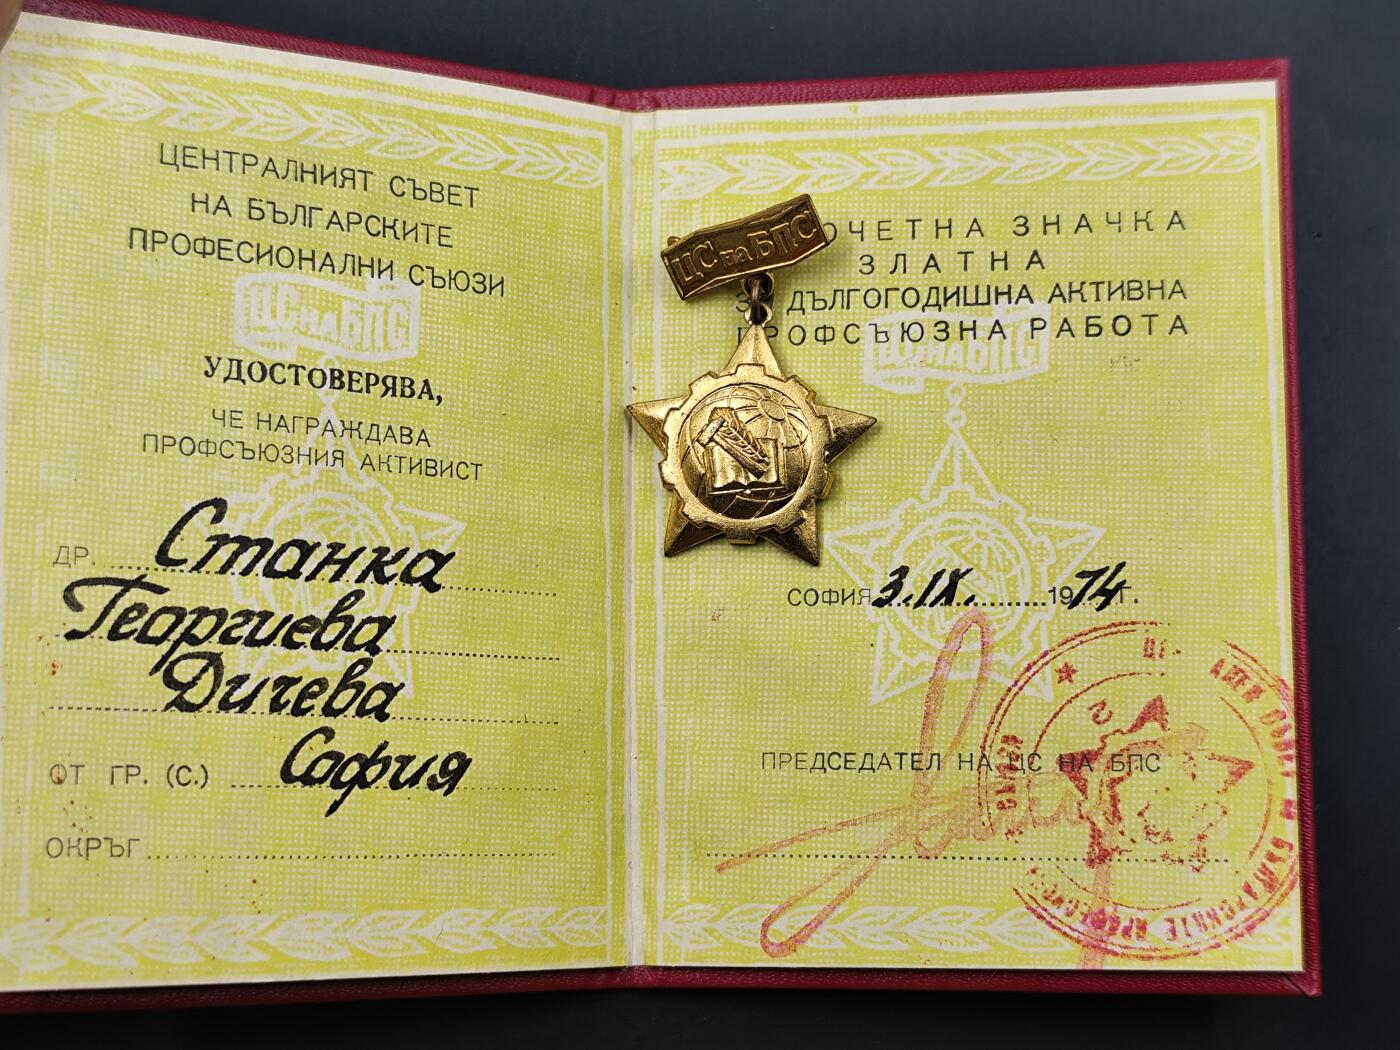 ЦЕНТРАЛНИЯТ СЪВЕТ
НА БЪЛГАРСКИТЕ
ПРОФЕСИОНАЛНИ СЪЮЗИ
ЦС на БПС
УДОСТОВЕРЯВА,
ЧЕ НАГРАЖДАВА
ПРОФСЪЮЗНИЯ АКТИВИСТ
ДР. Станка
Георгиева
Дичева
ОТ ГР. (С.) София
ОКРЪГ
ЦС на БПС
ОЧЕТНА ЗНАЧКА
ЗЛАТНА
ДЪЛГОГОДИШНА АКТИВНА
ПРОФСЪЮЗНА РАБОТА
ЦС НА БПС
СОФИЯ 3.IX. 1974 Г.
ПРЕДСЕДАТЕЛ НА ЦС НА БПС
БЪЛГАРСКИТЕ